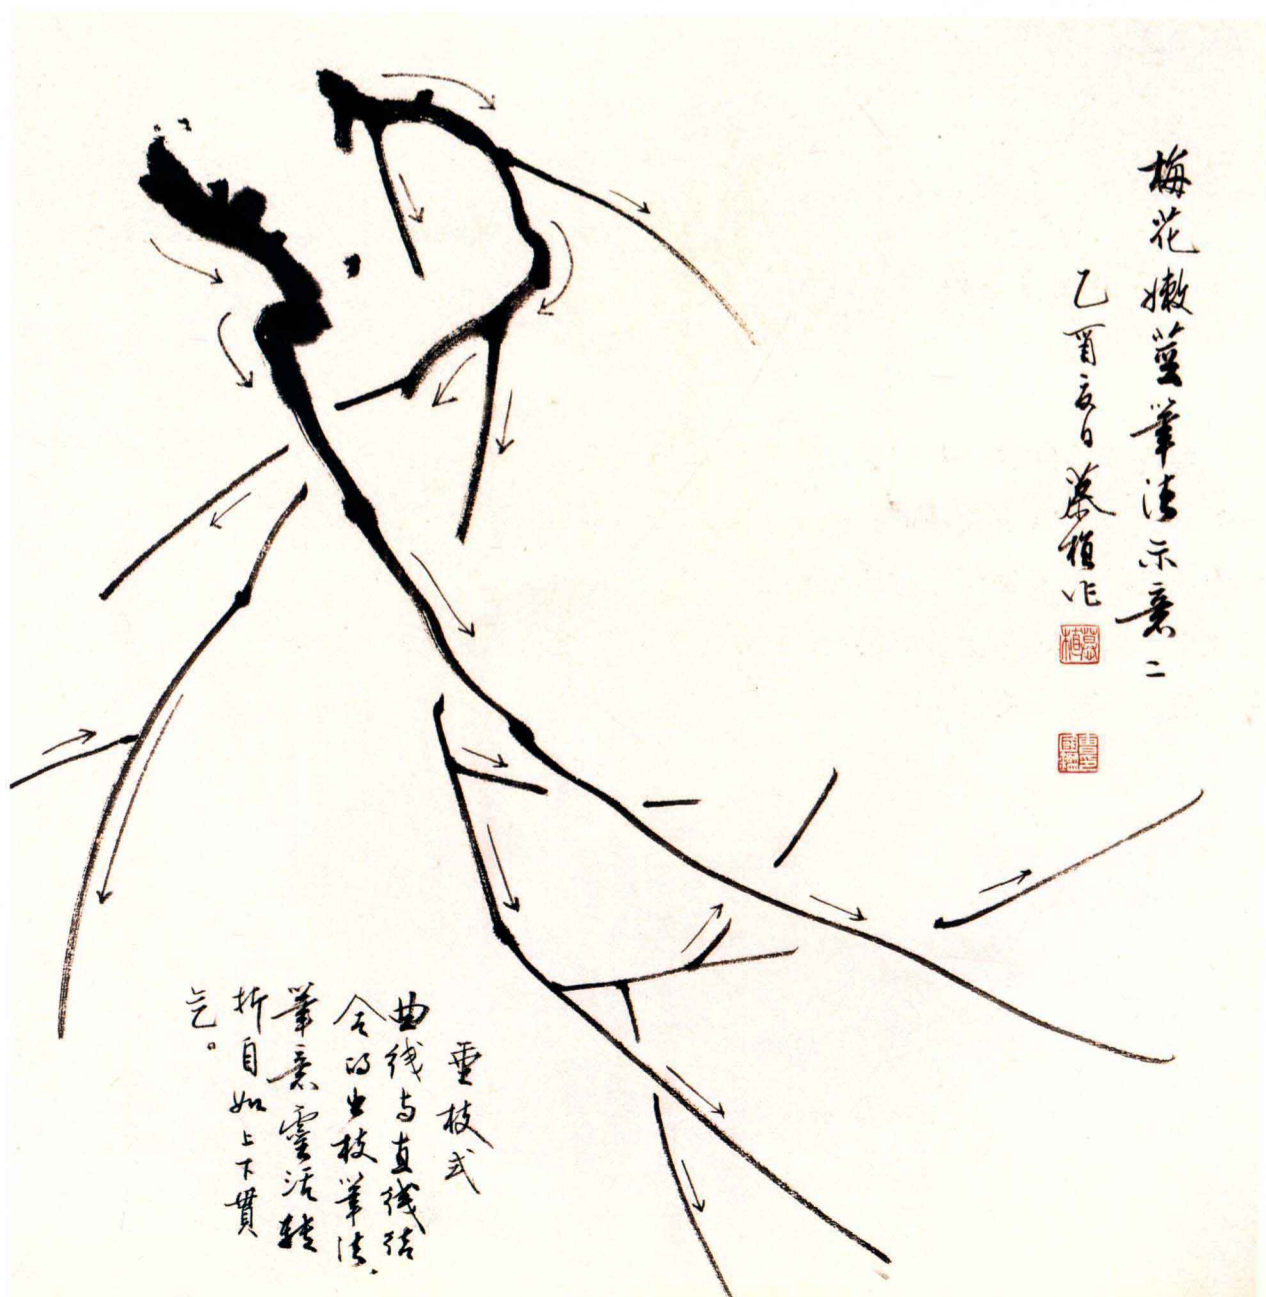 梅花嫩莖筆法示意二
乙酉夏日慕植作
慕植
垂枝式
曲线与直线结
合的出枝筆法、
筆意靈活转
折自如上下貫
气。